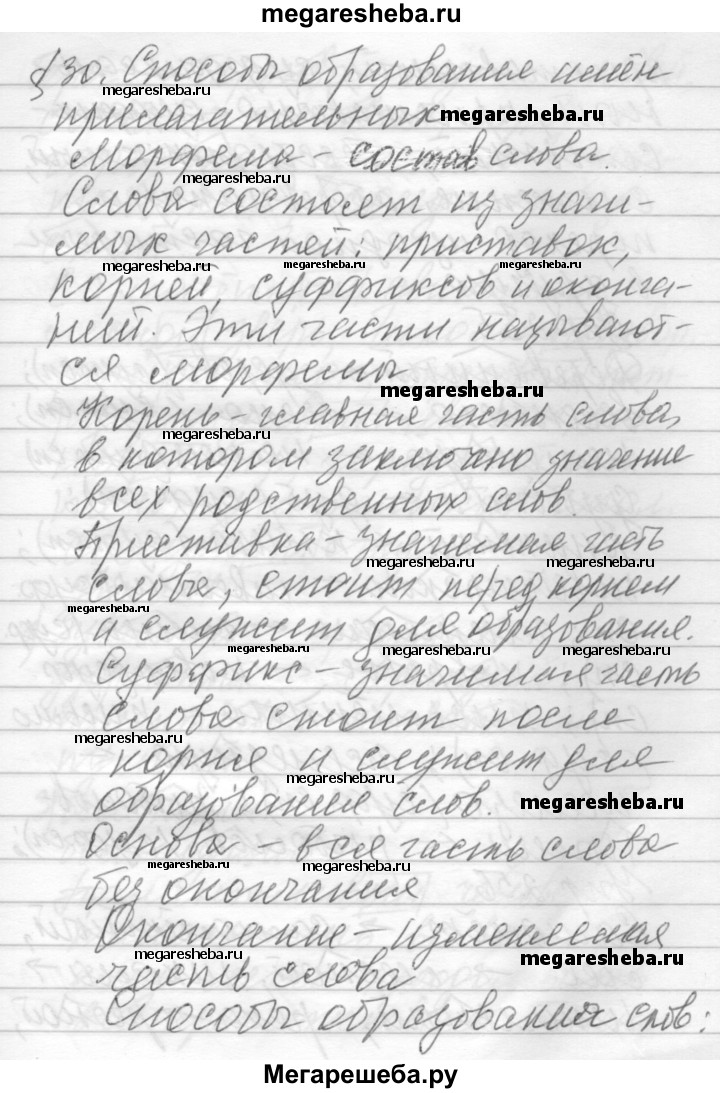 megaresheba.ru
§30. Способы образования имён
megaresheba.ru
прилагательных
megaresheba.ru
Морфема - состав слова.
megaresheba.ru
Слова состоят из значи-
мых частей: приставок,
megaresheba.ru megaresheba.ru megaresheba.ru
корней, суффиксов и оконча-
ний. Эти части называют-
ся морфемы
megaresheba.ru
Корень - главная часть слова,
megaresheba.ru
в котором заключено значение
всех родственных слов.
Приставка - значимая часть
megaresheba.ru megaresheba.ru
слова, стоит перед корнем
megaresheba.ru
и служит для образования.
megaresheba.ru megaresheba.ru megaresheba.ru
Суффикс - значимая часть
слова стоит после
megaresheba.ru
корня и служит для
megaresheba.ru
образования слов.
megaresheba.ru
Основа - вся часть слова
megaresheba.ru megaresheba.ru
без окончания
Окончание - изменяемая
megaresheba.ru megaresheba.ru
часть слова
Способы образования слов:
megaresheba.ru megaresheba.ru
Мегарешеба.ру